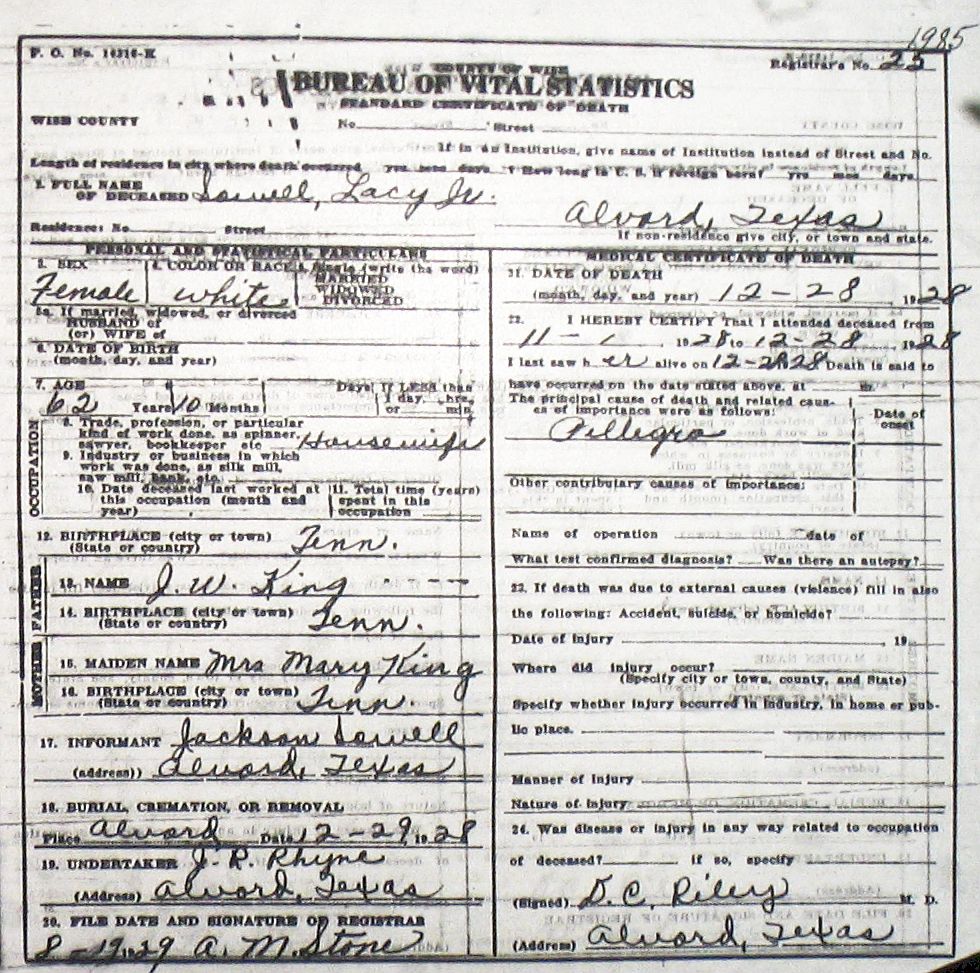 1985
F. O. No. 16316-K
Registrar's No. 25
COUNTY OF WISE
BUREAU OF VITAL STATISTICS
STANDARD CERTIFICATE OF DEATH
WISE COUNTY
No. Street
If in an Institution, give name of Institution instead of Street and No.
Length of residence in city where death occurred yrs mos days How long in U. S. if foreign born? yrs mos days
2. FULL NAME
OF DECEASED Sowell, Lacy Jr.
Alvord, Texas
Residence: No. Street
If non-residence give city, or town and state.
PERSONAL AND STATISTICAL PARTICULARS
3. SEX 4. COLOR OR RACE 5. Single (write the word)
MARRIED
WIDOWED
DIVORCED
Female white
5a. If married, widowed, or divorced
HUSBAND of
(or) WIFE of
6. DATE OF BIRTH
(month, day, and year)
7. AGE Days If LESS than
1 day, hrs.
or min.
62 Years 10 Months
OCCUPATION
8. Trade, profession, or particular
kind of work done, as spinner,
sawyer, bookkeeper etc Housewife
9. Industry or business in which
work was done, as silk mill,
saw mill, bank, etc.
10. Date deceased last worked at
this occupation (month and
year)
11. Total time (years)
spent in this
occupation
12. BIRTHPLACE (city or town)
(State or country) Tenn.
FATHER
13. NAME J. W. King
14. BIRTHPLACE (city or town)
(State or country) Tenn.
MOTHER
15. MAIDEN NAME Mrs Mary King
16. BIRTHPLACE (city or town)
(State or country) Tenn.
17. INFORMANT Jackson Sowell
(address)) Alvord, Texas
18. BURIAL, CREMATION, OR REMOVAL
Place Alvord Date 12-29, 1928
19. UNDERTAKER J. R. Rhyne
(Address) Alvord, Texas
20. FILE DATE AND SIGNATURE OF REGISTRAR
8-19-29 A. M. Stone
MEDICAL CERTIFICATE OF DEATH
21. DATE OF DEATH
(month, day, and year) 12-28, 1928
22. I HEREBY CERTIFY That I attended deceased from
11-1, 1928 to 12-28, 1928
I last saw her alive on 12-28 28 Death is said to
have occurred on the date stated above, at m.
The principal cause of death and related caus-
es of importance were as follows:
Date of
onset
Pillegra
Other contributory causes of importance:
Name of operation date of
What test confirmed diagnosis? Was there an autopsy?
23. If death was due to external causes (violence) fill in also
the following: Accident, suicide, or homicide?
Date of injury , 19
Where did injury occur?
(Specify city or town, county, and State)
Specify whether injury occurred in industry, in home or pub-
lic place.
Manner of injury
Nature of injury
24. Was disease or injury in any way related to occupation
of deceased? if so, specify
(Signed) D. C. Riley M. D.
(Address) Alvord, Texas